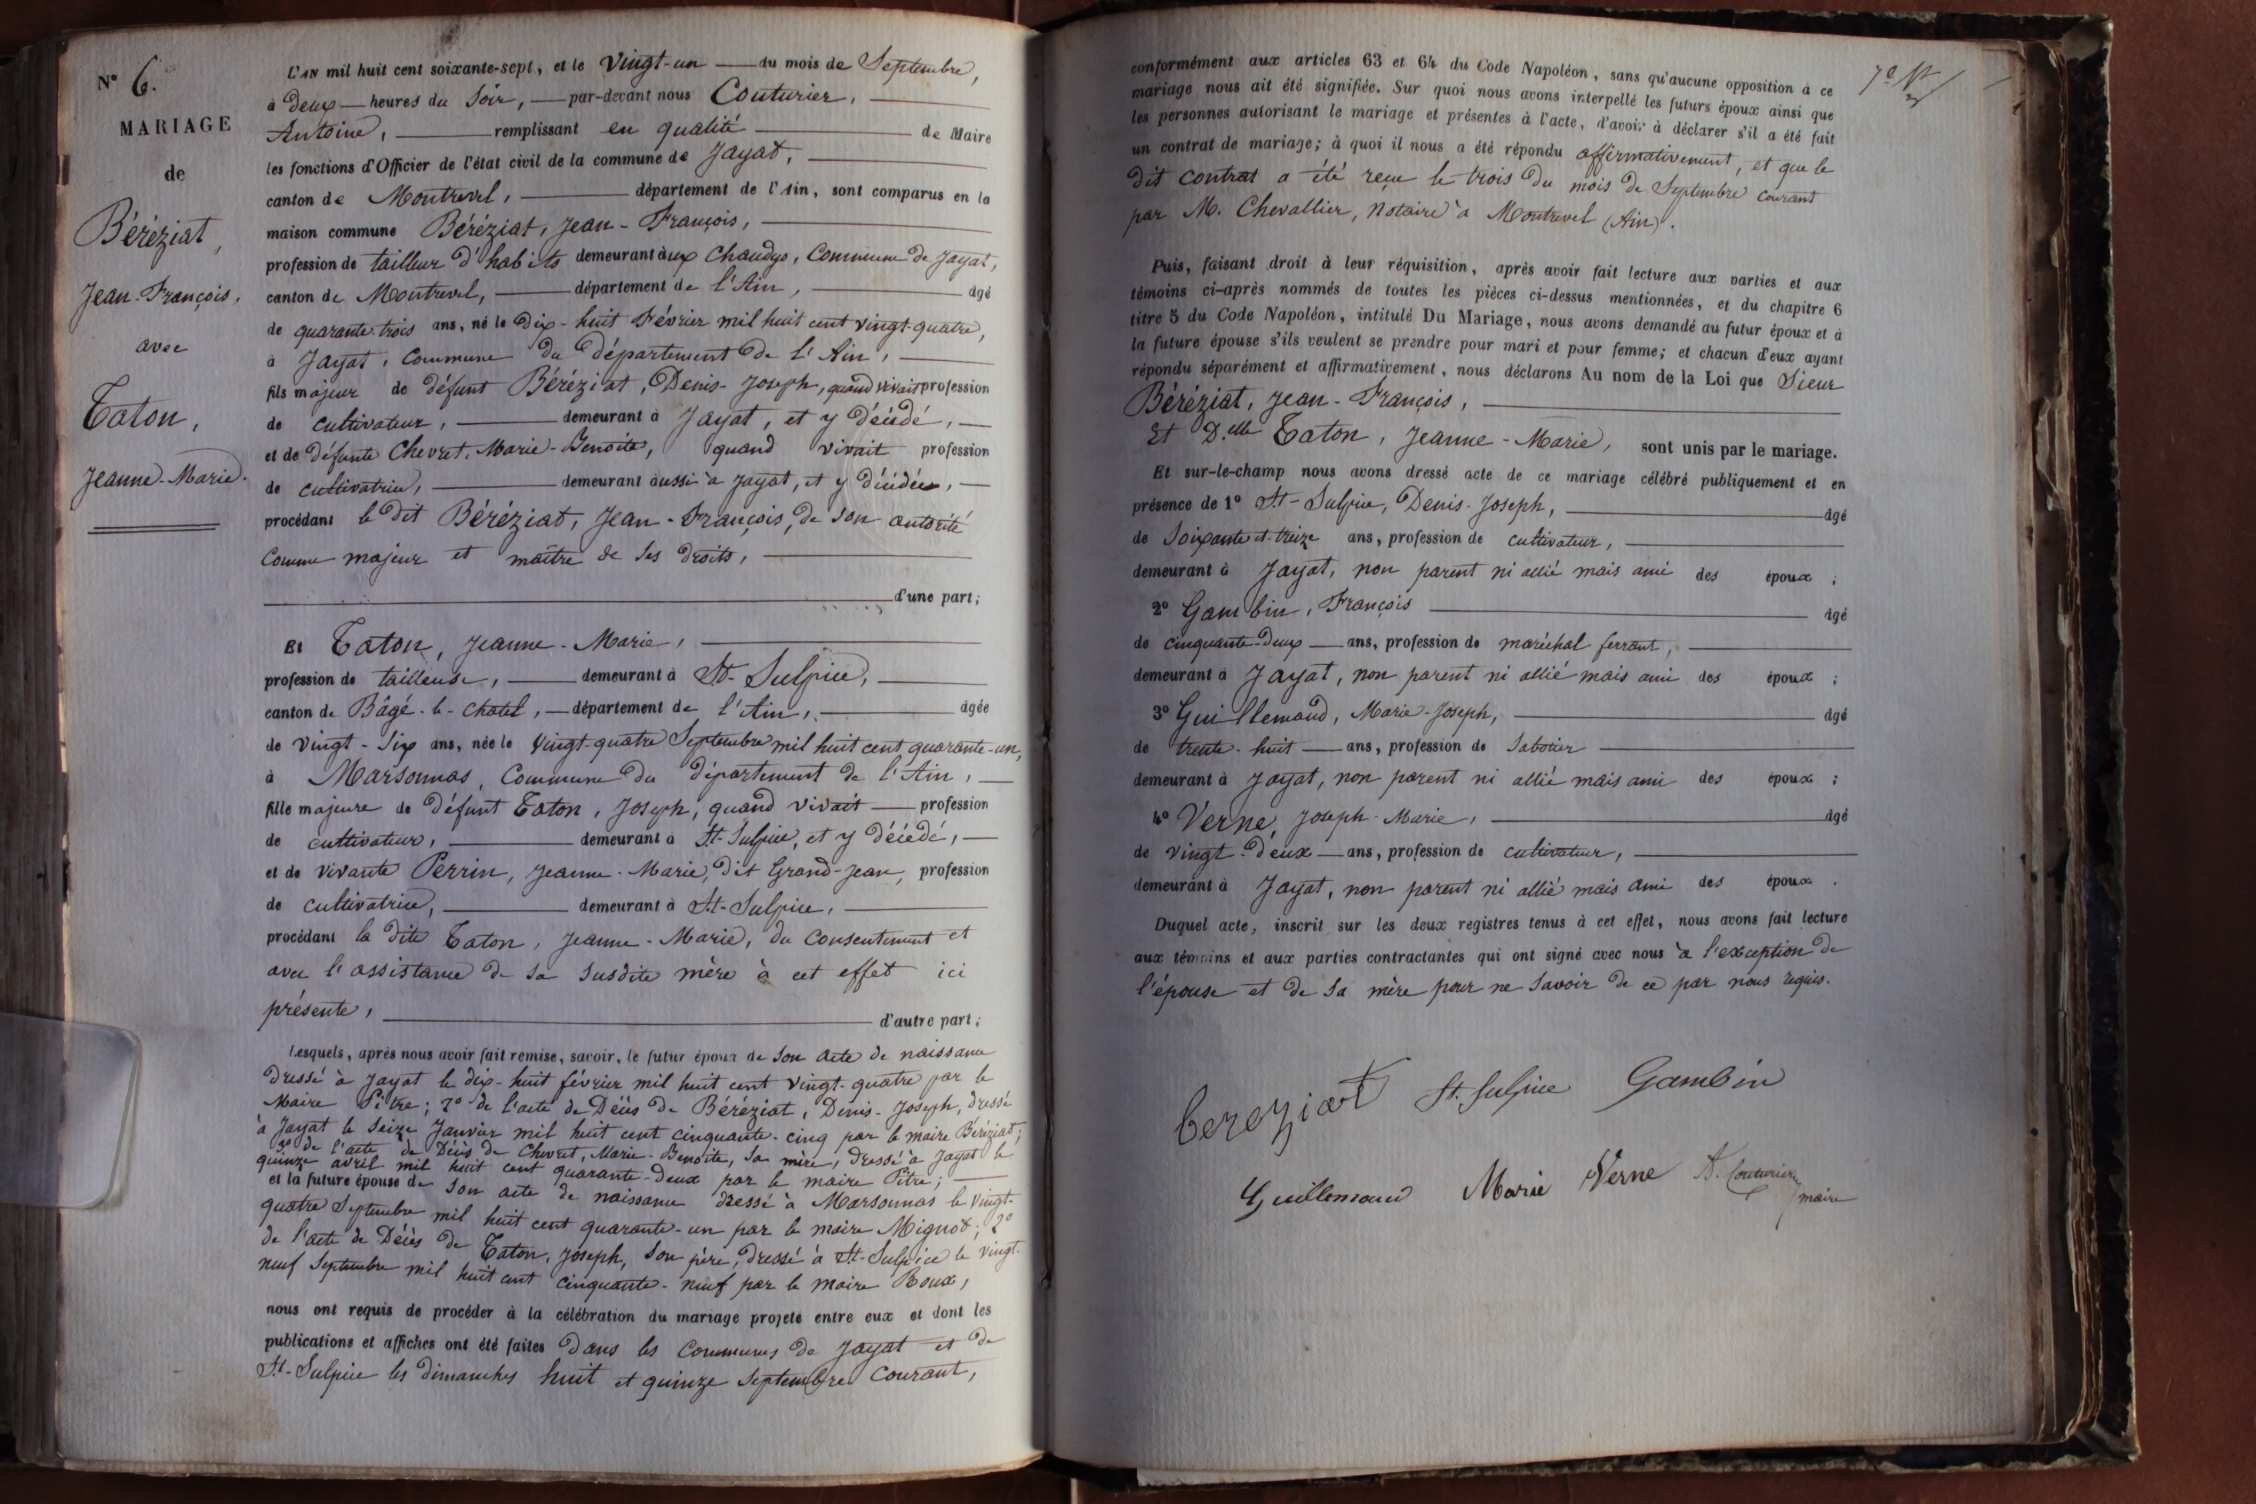 N° 6.
MARIAGE
de
Béréziat,
Jean-François,
avec
Taton,
Jeanne-Marie.
L'AN mil huit cent soixante-sept, et le vingt-un du mois de Septembre,
à deux heures du soir, par-devant nous Couturier,
Antoine, remplissant en qualité de Maire
les fonctions d'Officier de l'état civil de la commune de Jayat,
canton de Montrevel, département de l'Ain, sont comparus en la
maison commune Béréziat, Jean-François,
profession de tailleur d'habits demeurant aux Chaudys, Commune de Jayat,
canton de Montrevel, département de l'Ain, âgé
de quarante-trois ans, né le Dix-huit Février mil huit cent vingt-quatre,
à Jayat, Commune du département de l'Ain,
fils majeur de défunt Béréziat, Denis-Joseph, quand vivait profession
de cultivateur, demeurant à Jayat, et y décédé,
et de défunte Chevret, Marie-Benoite, quand vivait profession
de cultivatrice, demeurant aussi à Jayat, et y décédée,
procédant le dit Béréziat, Jean-François, de son autorité
comme majeur et maître de ses droits,
d'une part;
Et Taton, Jeanne-Marie,
profession de tailleuse, demeurant à St-Sulpice,
canton de Bâgé-le-Chatel, département de l'Ain, âgée
de vingt-six ans, née le vingt-quatre Septembre mil huit cent quarante-un,
à Marsonnas, Commune du département de l'Ain,
fille majeure de défunt Taton, Joseph, quand vivait profession
de cultivateur, demeurant à St-Sulpice, et y décédé,
et de vivante Perrin, Jeanne-Marie, dit Grand-Jean, profession
de cultivatrice, demeurant à St-Sulpice,
procédant la dite Taton, Jeanne-Marie, du consentement et
avec l'assistance de sa susdite mère à cet effet ici
présente, d'autre part;
Lesquels, après nous avoir fait remise, savoir, le futur époux de son acte de naissance
dressé à Jayat le dix-huit février mil huit cent vingt-quatre par le
Maire Pitre; 2° de l'acte de Décès de Béréziat, Denis-Joseph, dressé
à Jayat le seize Janvier mil huit cent cinquante-cinq par le maire Béréziat;
3° de l'acte de Décès de Chevret, Marie-Benoite, sa mère, dressé à Jayat le
quinze avril mil huit cent quarante-deux par le maire Pitre;
et la future épouse de son acte de naissance dressé à Marsonnas le vingt-
quatre Septembre mil huit cent quarante-un par le maire Mignot; 2°
de l'acte de Décès de Taton, Joseph, son père, dressé à St-Sulpice le vingt-
neuf Septembre mil huit cent cinquante-neuf par le maire Roux,
nous ont requis de procéder à la célébration du mariage projeté entre eux et dont les
publications et affiches ont été faites dans les communes de Jayat et de
St-Sulpice les dimanches huit et quinze Septembre courant,
conformément aux articles 63 et 64 du Code Napoléon, sans qu'aucune opposition à ce
mariage nous ait été signifiée. Sur quoi nous avons interpellé les futurs époux ainsi que
les personnes autorisant le mariage et présentes à l'acte, d'avoir à déclarer s'il a été fait
un contrat de mariage; à quoi il nous a été répondu affirmativement, et que le
dit contrat a été reçu le trois du mois de Septembre courant
par M. Chevallier, Notaire à Montrevel (Ain).
Puis, faisant droit à leur réquisition, après avoir fait lecture aux parties et aux
témoins ci-après nommés de toutes les pièces ci-dessus mentionnées, et du chapitre 6
titre 5 du Code Napoléon, intitulé Du Mariage, nous avons demandé au futur époux et à
la future épouse s'ils veulent se prendre pour mari et pour femme; et chacun d'eux ayant
répondu séparément et affirmativement, nous déclarons Au nom de la Loi que Sieur
Béréziat, Jean-François,
Et D.elle Taton, Jeanne-Marie, sont unis par le mariage.
Et sur-le-champ nous avons dressé acte de ce mariage célébré publiquement et en
présence de 1° St-Sulpice, Denis-Joseph, âgé
de soixante-et-treize ans, profession de cultivateur,
demeurant à Jayat, non parent ni allié mais ami des époux;
2° Gambin, François âgé
de cinquante-deux ans, profession de maréchal ferrant,
demeurant à Jayat, non parent ni allié mais ami des époux;
3° Guillemaud, Marie-Joseph, âgé
de trente-huit ans, profession de sabotier
demeurant à Jayat, non parent ni allié mais ami des époux;
4° Verne, Joseph-Marie, âgé
de vingt-deux ans, profession de cultivateur,
demeurant à Jayat, non parent ni allié mais ami des époux.
Duquel acte, inscrit sur les deux registres tenus à cet effet, nous avons fait lecture
aux témoins et aux parties contractantes qui ont signé avec nous à l'exception de
l'épouse et de sa mère pour ne savoir de ce par nous requis.
bereziat St. Sulpice Gambin
Guillemaud Marie Verne A. Couturier
maire